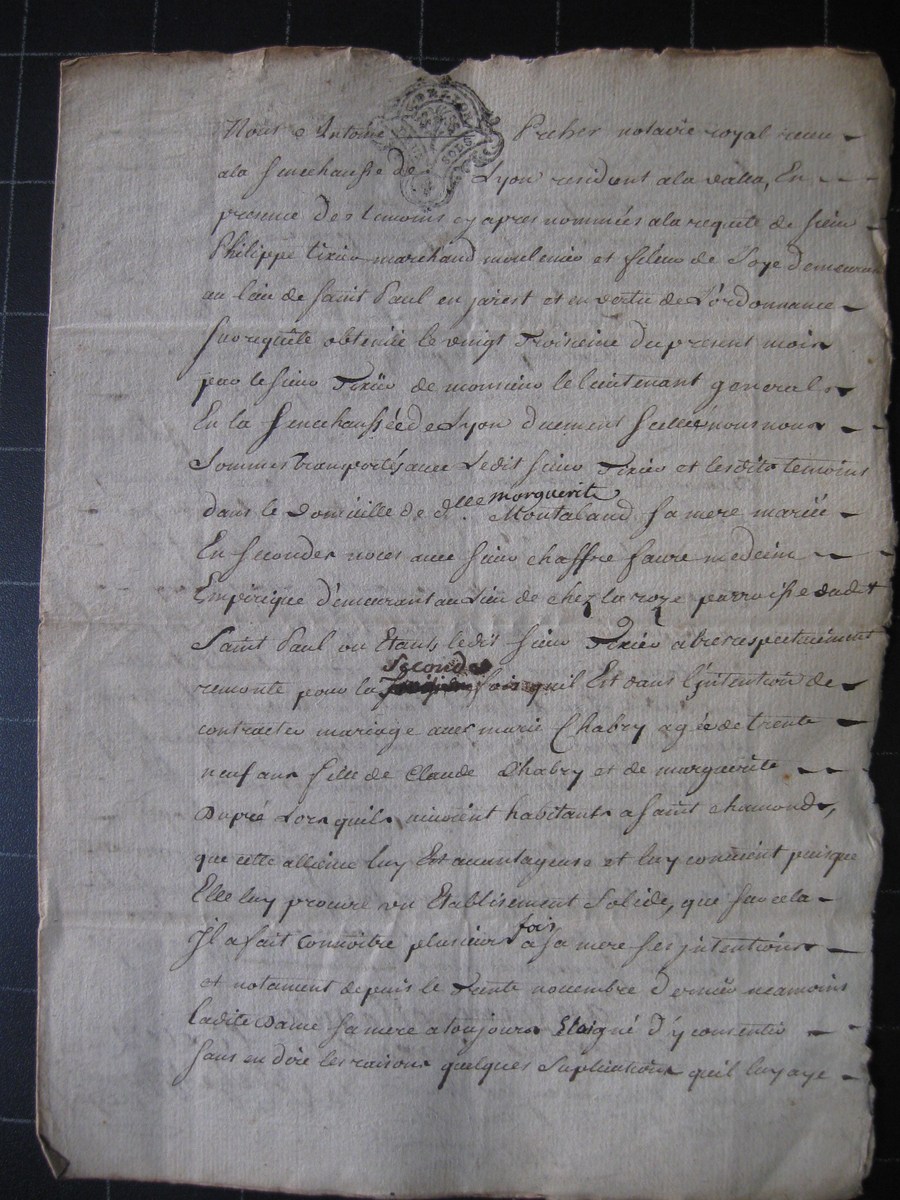 Nous Antoine Picher notaire royal receu
a la senechaussée de Lyon resident a la valla, En
presence des temoins cy apres nommées a la requête de sieur
Philippe tixier marchand moulenier et fileur de soye demeurant
au lieu de saint Paul en jarest et en vertu de L'ordonnance
sur requête obtenüe le vingt Troisieme du present mois
par le sieur Tixier de monsieur le lieutenant general
En la senechaussée de Lyon duement scellée nous nous
Sommes transportés avec Ledit sieur Tixier et lesdits temoins
dans le domicille de dlle morguerite Montaland sa mere mariée
En secondes noces avec sieur chaffre faure medecin
Empirique demeurant au Lieu de chez la roze parroisse dudt
Saint Paul ou Etants ledit sieur Tixier a tres respectueusement
remontré pour la seconde fois quil Est dans l'intention de
contracter mariage avec marie Chabry agée de trente
neuf ans fille de Claude Chabry et de marguerite
Dupré Lorsquils vivoient habitants a saint chamond,
que cette allience luy Est avantageuse et luy convient puisque
Elle luy procure un Etablisement Solide, que sur cela
Il a fait connoitre plusieurs fois a sa mere ses intentions
et notament depuis le Trente novembre dernier neamoins
ladite Dame sa mere a toujours Eloigné d'y consentir
sans en dire les raisons quelques suplications qu'il luy aye